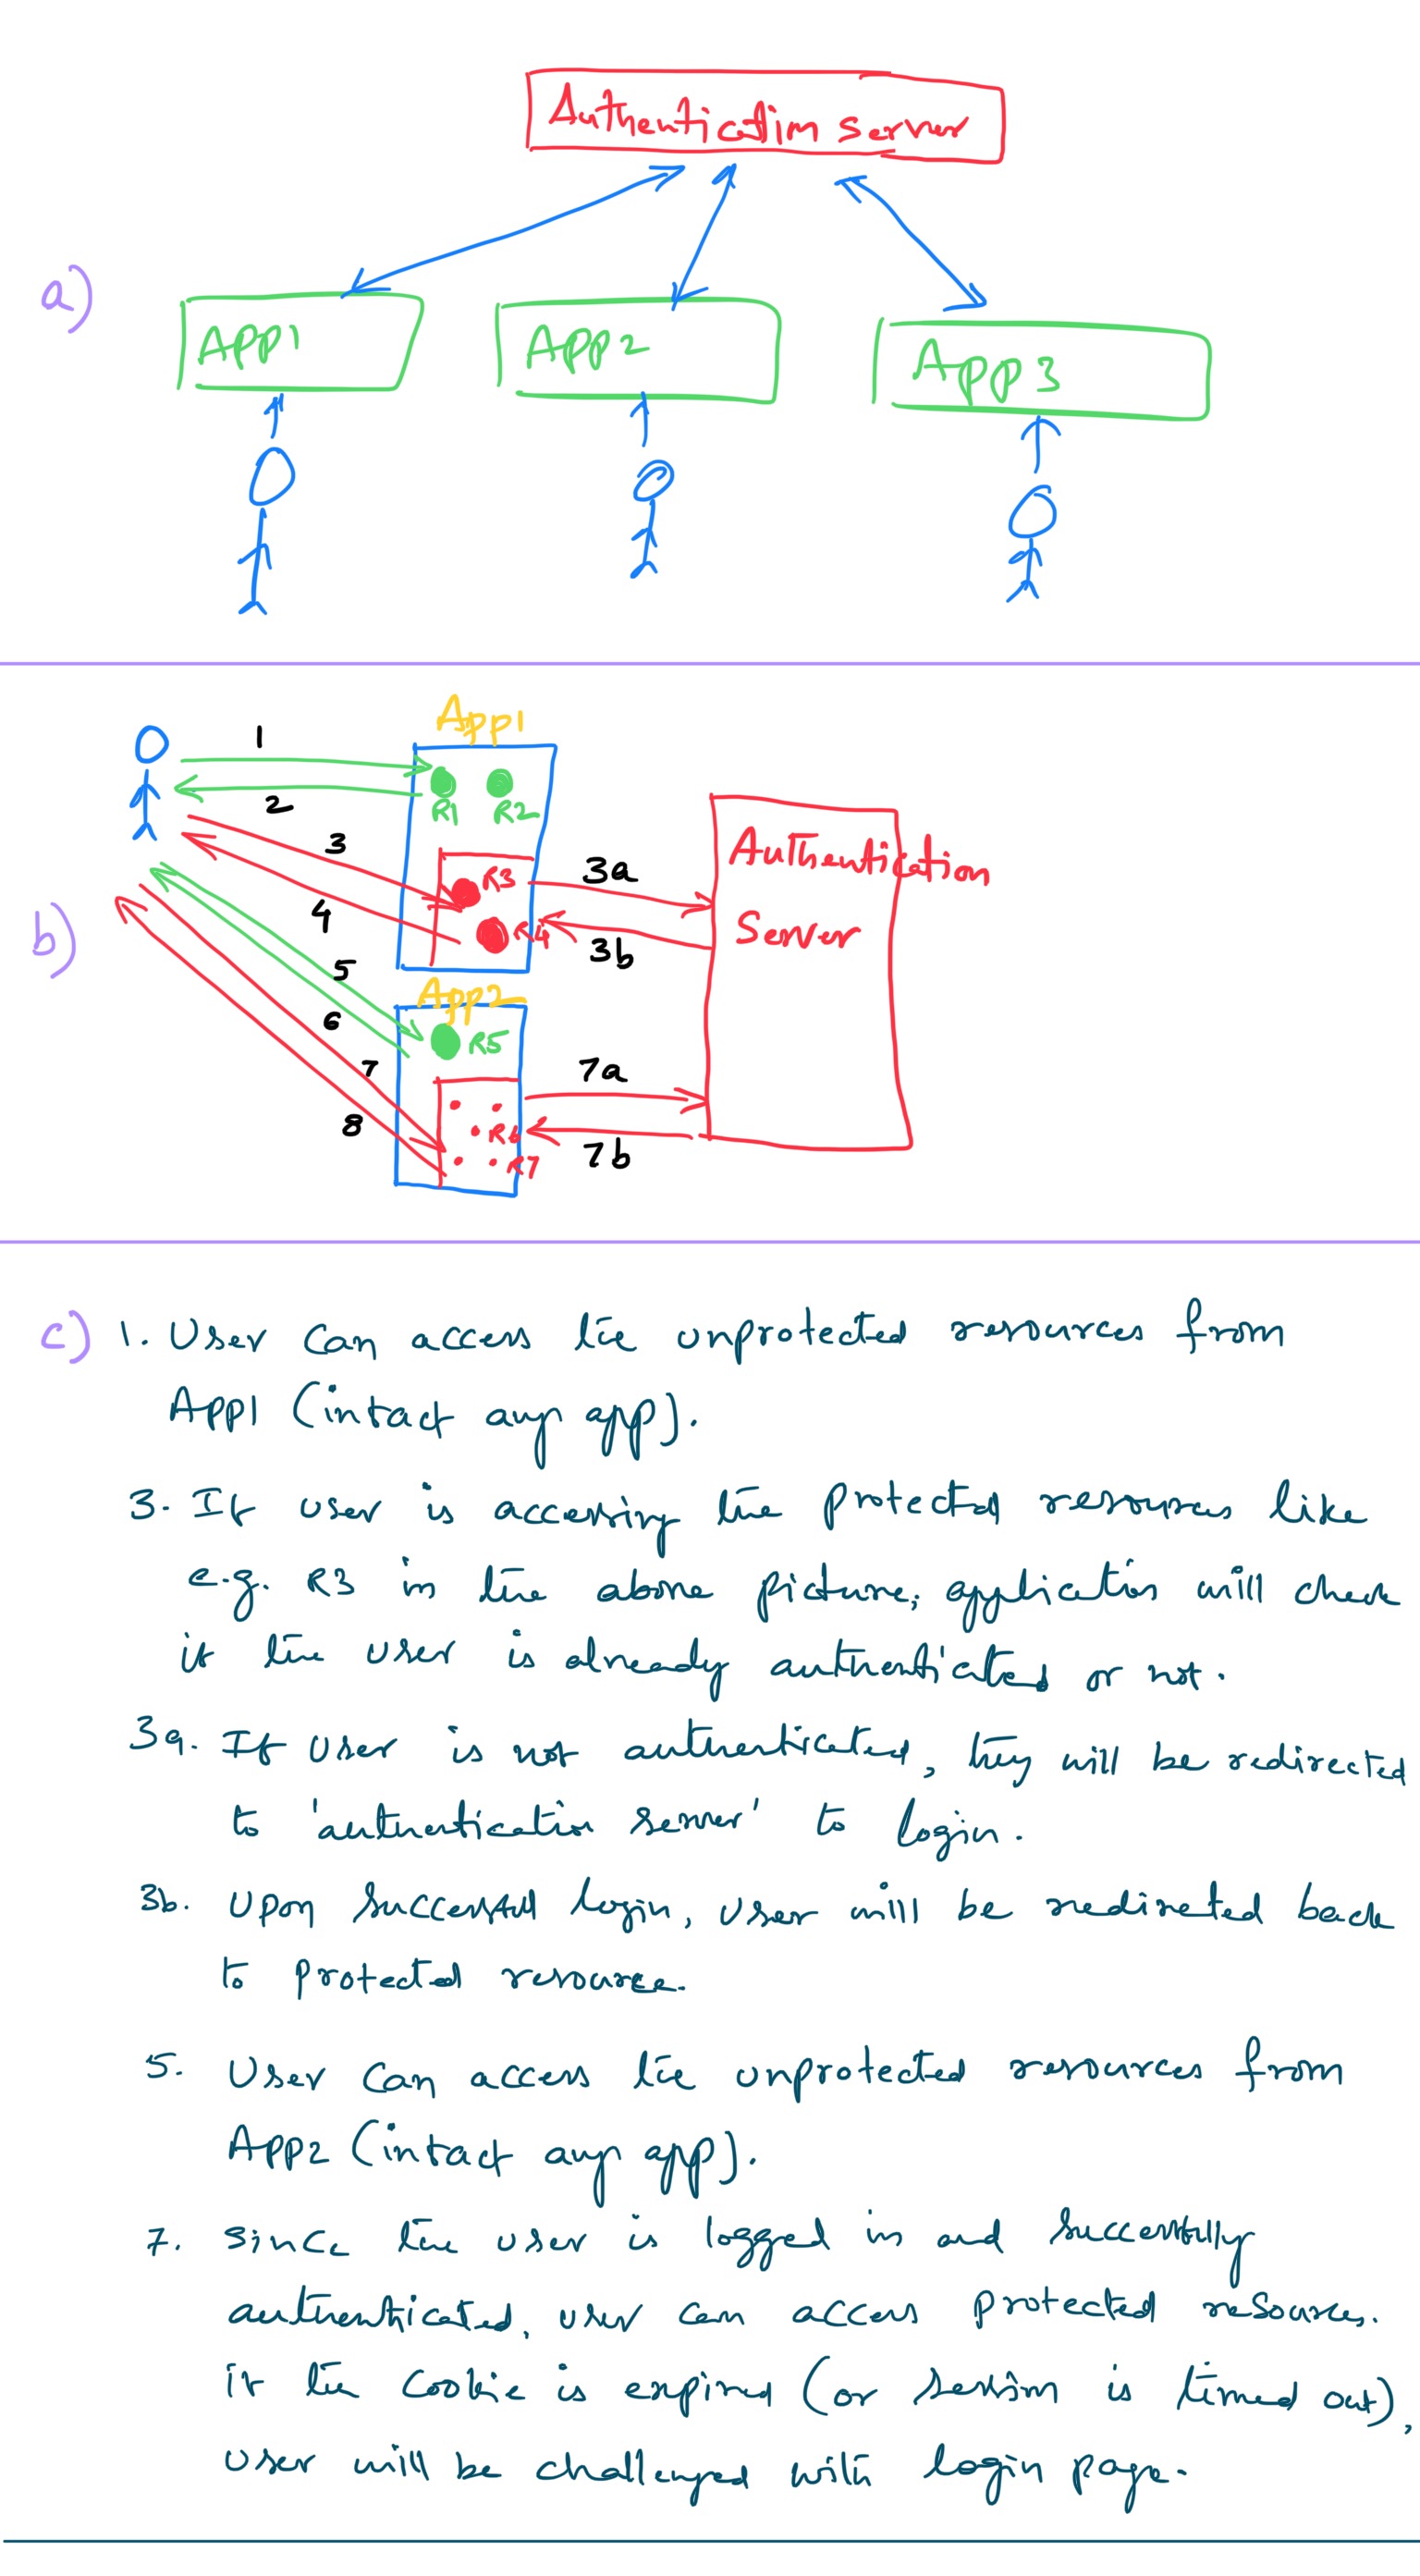 Authentication server
a)
App1
App2
App3
App1
1
R1
R2
2
3
R3
3a
Authentication
4
R4
Server
b)
3b
5
App2
6
R5
7
7a
8
R6
7b
R7
c) 1. User can access the unprotected resources from
App1 (intact any app).
3. If user is accessing the protected resources like
e.g. R3 in the above picture, application will check
if the user is already authenticated or not.
3a. If user is not authenticated, they will be redirected
to 'authentication server' to login.
3b. Upon successful login, user will be redirected back
to protected resource.
5. User can access the unprotected resources from
App2 (intact any app).
7. since the user is logged in and successfully
authenticated, user can access protected resources.
if the cookie is expired (or session is timed out),
user will be challenged with login page.